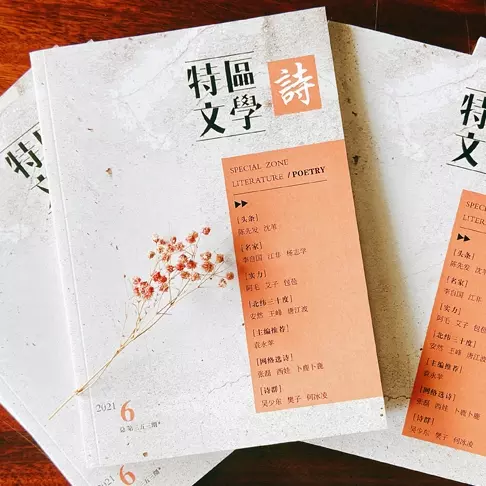 特區
文學
詩
SPECIAL ZONE
LITERATURE / POETRY
[头条]
陈先发 沈苇
[名家]
李自国 江非 杨志学
[实力]
阿毛 艾子 包苞
[北纬三十度]
安然 王峰 唐江波
[主编推荐]
袁永苹
[网络选诗]
张磊 西娃
[诗群]
吴少东 樊子 何冰凌
2021 6
总第三五三期
特區
文
6
特
文
SPECIAL
LITERATU
[头条]
陈先发 沈苇
[名家]
李自国 江非
[实力]
阿毛 艾子 包
[北纬三十度]
安然 王峰 唐江
[主编推荐]
袁永苹
[网络选诗]
张磊 西娃
[诗群]
吴少东 樊子 何冰凌